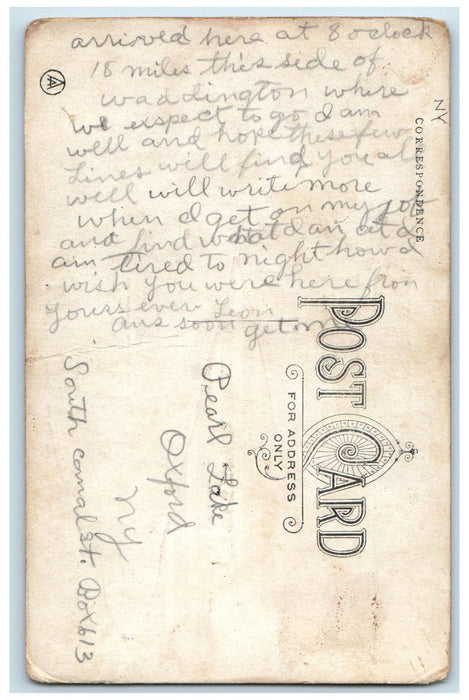 arrived here at 8 oclock
18 miles this side of
waddington where
we expect to go I am
well and hope these few
Lines will find you all
well will write more
when I get on my job
and find what I am at I
am tired to night how I
wish you were here from
yours ever Leon
ans soon
NY
CORRESPONDENCE
POST CARD
FOR ADDRESS
ONLY
Pearl Lake
Oxford
NY
South canal st. Box 613